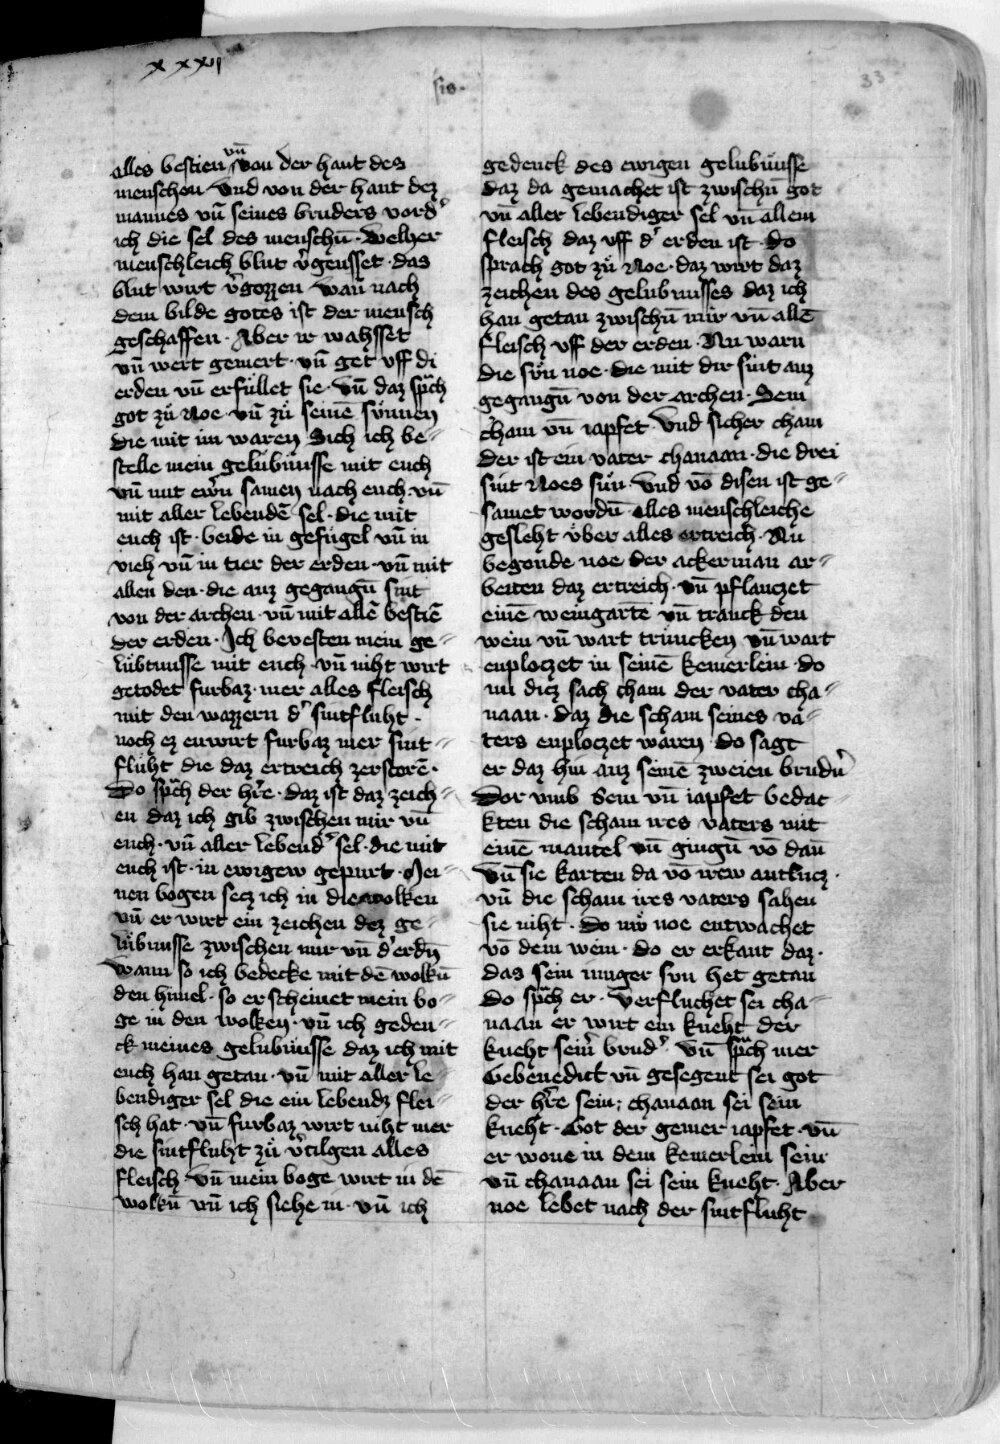 xxxii
33
alles bestien vn̄ von der hant des
menschen Vnd von der hant dez
mannes vn̄ seines bruders vord᾽
ich die sel des menschn̄ · Welher
menschleich blut v᾽geusset · das
blut wirt v᾽gozzen wan nach
dem bilde gotes ist der mensch
geschaffen · Aber ir wahsset
vn̄ wert gemert · vn̄ get vff di
erden vn̄ erfüllet sie · Vn̄ daz sp͛ch
got zů Noe · vn̄ zů seinē sünnen
die mit im waren Sich ich be〃
stelle mein gelübnüsse mit euch
vn̄ mit ew᾽n samen nach euch vn̄
mit aller lebendē sel · die mit
euch ist · beide in gefügel vn̄ in
vieh vn̄ in tier der erden · vn̄ mit
allen den · die auz gegangn̄ sint
von der archen · vn̄ mit allē bestiē
der erden · Ich bevesten mein ge〃
lübtnusse mit euch · vn̄ niht wirt
getodet furbaz · mer alles fleisch
mit den wazzern d᾽ sintfluht ·
noch ez enwirt furbaz mer sint〃
fluht die daz ertreich zerstorē ·
Do sp͛ch der h᾽re · daz ist daz zeich〃
en daz ich gib zwischen mir vn̄
euch · vn̄ aller lebend᾽ sel · die mit
euch ist · in ewigew gepurt · Mei〃
nen bogen secz ich in die wolken
vn̄ er wirt ein zeichen dez ge〃
lübnusse zwischen mir vn̄ d᾽ erdn̄
Wann so ich bedecke mit dē wolkn̄
den himel · so erscheinet mein bo〃
ge in den wolken · vn̄ ich geden〃
ck meines gelubnüsse daz ich mit
euch han getan · vn̄ mit aller le〃
bendiger sel die ein lebendz flei〃
sch hat · vn̄ furbaz wirt niht mer
die sintfluht zů v᾽tilgen alles
fleisch Vn̄ mein boge wirt in dē
wolkn̄ vn̄ ich siehe in · vn̄ ich
gedenck des ewigen gelubnüsse
daz da gemachet ist zwischn̄ got
vn̄ aller lebendiger sel vn̄ allem
fleisch daz vff d᾽ erden ist · do
sprach got zů Noe · daz wirt daz
zeichen des gelubnusses daz ich
han getan zwischn̄ mir vn̄ allē
fleisch vff der erden · Nu warn
die sün noe · die mit dir sint auz
gegangn̄ von der archen · Sem
cham vn̄ iapfet · Vnd sicher cham
der ist ein vater chanaan · die drei
sint Noes sün · Vnd vō disen ist ge〃
samet wordn̄ alles menschleiche
gesleht vber alles ertreich · Nu
begonde noe der ackerman ar〃
beiten daz ertreich · vn̄ pflanczet
einē weingartē vn̄ tranck den
wein vn̄ wart truncken vn̄ wart
enploczet in seinē kemerlein · do
nu diez sach cham der vater cha〃
naan · daz die scham seines va〃
ters enploczet waren · do sagt
er daz hin auz seinē zweien brud᾽n
Dor vmb Sem vn̄ iapfet bedac〃
kten die scham ires vaters mit
einē mantel vn̄ gingn̄ vō dan̄
Vn̄ sie karten da vō irew antlucz ·
vn̄ die scham ires vaters sahen
sie niht · Do nu noe entwachet
vō dem wein · do er erkant daz ·
das sein iunger sun het getan
Do sp͛ch er · Verfluchet sei cha〃
naan er wirt ein kneht der
kneht sein᾽ brud᾽ · Vn̄ sp͛ch mer
Gebenedict vn̄ gesegent sei got
der h᾽re sem; chanaan sei sein
kneht · Got der gemer iapfet · vn̄
er wone in dem kemerlein sem
vn̄ chanaan sei sein kneht · Aber
noe lebet nach der sintfluht